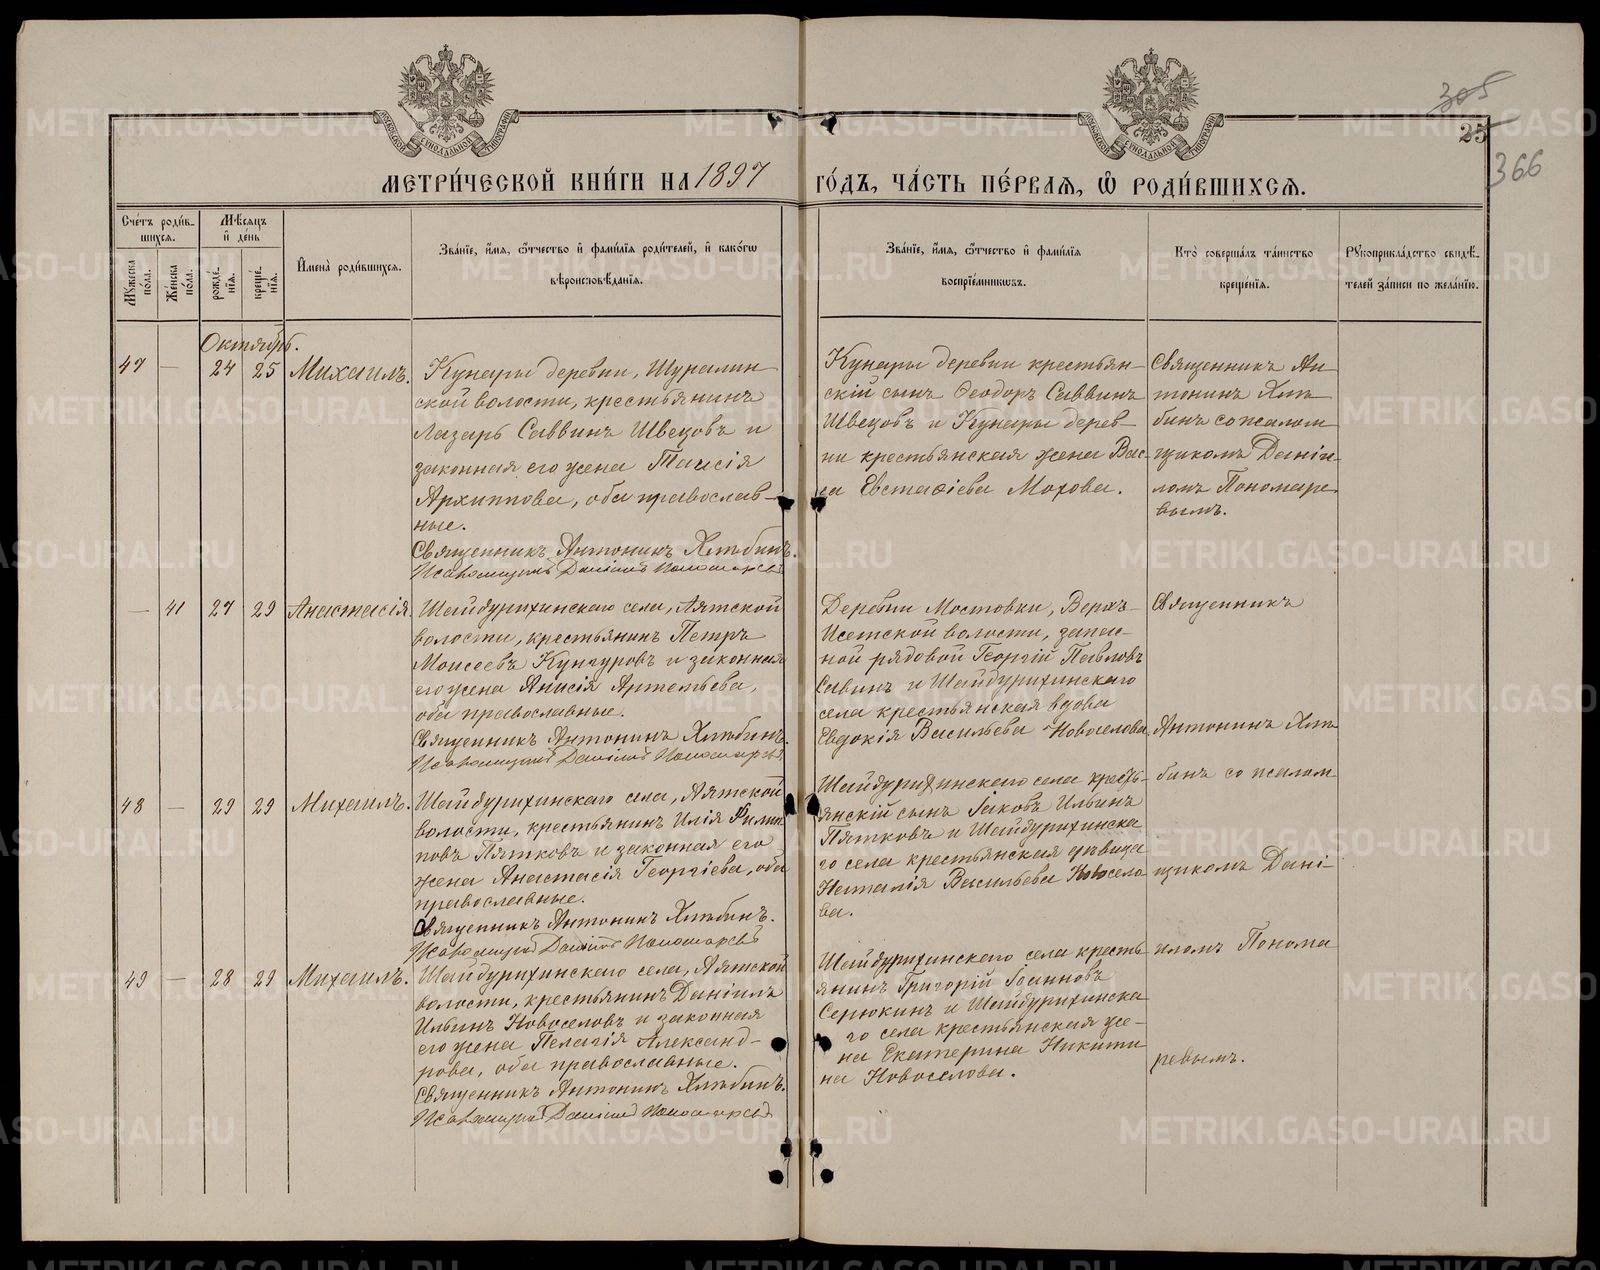 305
25
366
МЕТРИ́ЧЕСКОЙ КНИ́ГИ НА 1897 ГО́ДЪ, ЧА́СТЬ ПЕ́РВАѦ, Ѡ҆ РОДИ́ВШИХСѦ.
Сче́тъ роди́в-
шихсѧ.
Мѣ́сѧцъ
и҆ де́нь
И҆мена̀ роди́вшихсѧ.
Зва́нїе, и҆́мѧ, ѻ҆́тчество и҆ фами́лїѧ роди́телей, и҆ како́гѡ
вѣроисповѣ́данїѧ.
Зва́нїе, и҆́мѧ, ѻ҆́тчество и҆ фами́лїѧ
воспрїе́мникѡвъ.
Кто̀ соверша́лъ та́инство
креще́нїѧ.
Рꙋкоприкла́дство свидѣ́-
телей за́писи по жела́нїю.
Мꙋ́жеска
по́ла.
Же́нска
по́ла.
рожде́-
нїѧ.
креще́-
нїѧ.
Октябрь.
47 — 24 25 Михаилъ.
Кунары деревни, Шуралин-
ской волости, крестьянинъ
Лазарь Саввинъ Швецовъ и
законная его жена Таисія
Архиппова, оба православ-
ные.
Священникъ Антонинъ Хлѣбинъ.
Псаломщикъ Даніилъ Пономаревъ
Кунары деревни крестьян-
скій сынъ Ѳеодоръ Саввинъ
Швецовъ и Кунары дерев-
ни крестьянская жена Вас-
са Евстаѳіева Мохова.
Священникъ Ан-
тонинъ Хлѣ-
бинъ со псалом-
щикомъ Даніи-
ломъ Пономаре-
вымъ.
— 41 27 29 Анастасія.
Шайдурихинскаго села, Аятской
волости, крестьянинъ Петръ
Моисеевъ Кунгуровъ и законная
его жена Анисія Артемьева,
оба православные.
Священникъ Антонинъ Хлѣбинъ.
Псаломщикъ Даніилъ Пономаревъ
Деревни Мостовки, Верхъ-
Исетской волости, запас-
ной рядовой Георгій Павловъ
Савинъ и Шайдурихинскаго
села крестьянская вдова
Евдокія Васильева Новоселова
Священникъ
Антонинъ Хлѣ-
48 — 29 29 Михаилъ.
Шайдурихинскаго села, Аятской
волости, крестьянинъ Илія Филип-
повъ Пятковъ и законная его
жена Анастасія Георгіева, оба
православные.
Священникъ Антонинъ Хлѣбинъ.
Псаломщикъ Даніилъ Пономаревъ
Шайдурихинскаго села кресть-
янскій сынъ Іаковъ Ильинъ
Пятковъ и Шайдурихинска
го села крестьянская дѣвица
Наталія Васильева Новосело
ва.
бинъ со псалом
щикомъ Дані-
49 — 28 29 Михаилъ.
Шайдурихинскаго села, Аятской
волости, крестьянинъ Даніилъ
Ильинъ Новоселовъ и законная
его жена Пелагія Александ-
рова, оба православные.
Священникъ Антонинъ Хлѣбинъ.
Псаломщикъ Даніилъ Пономаревъ
Шайдурихинскаго села кресть
янинъ Григорій Іоанновъ
Серюкинъ и Шайдурихинска
го села крестьянская же-
на Екатерина Никити
на Новоселова.
иломъ Понома
ревымъ.